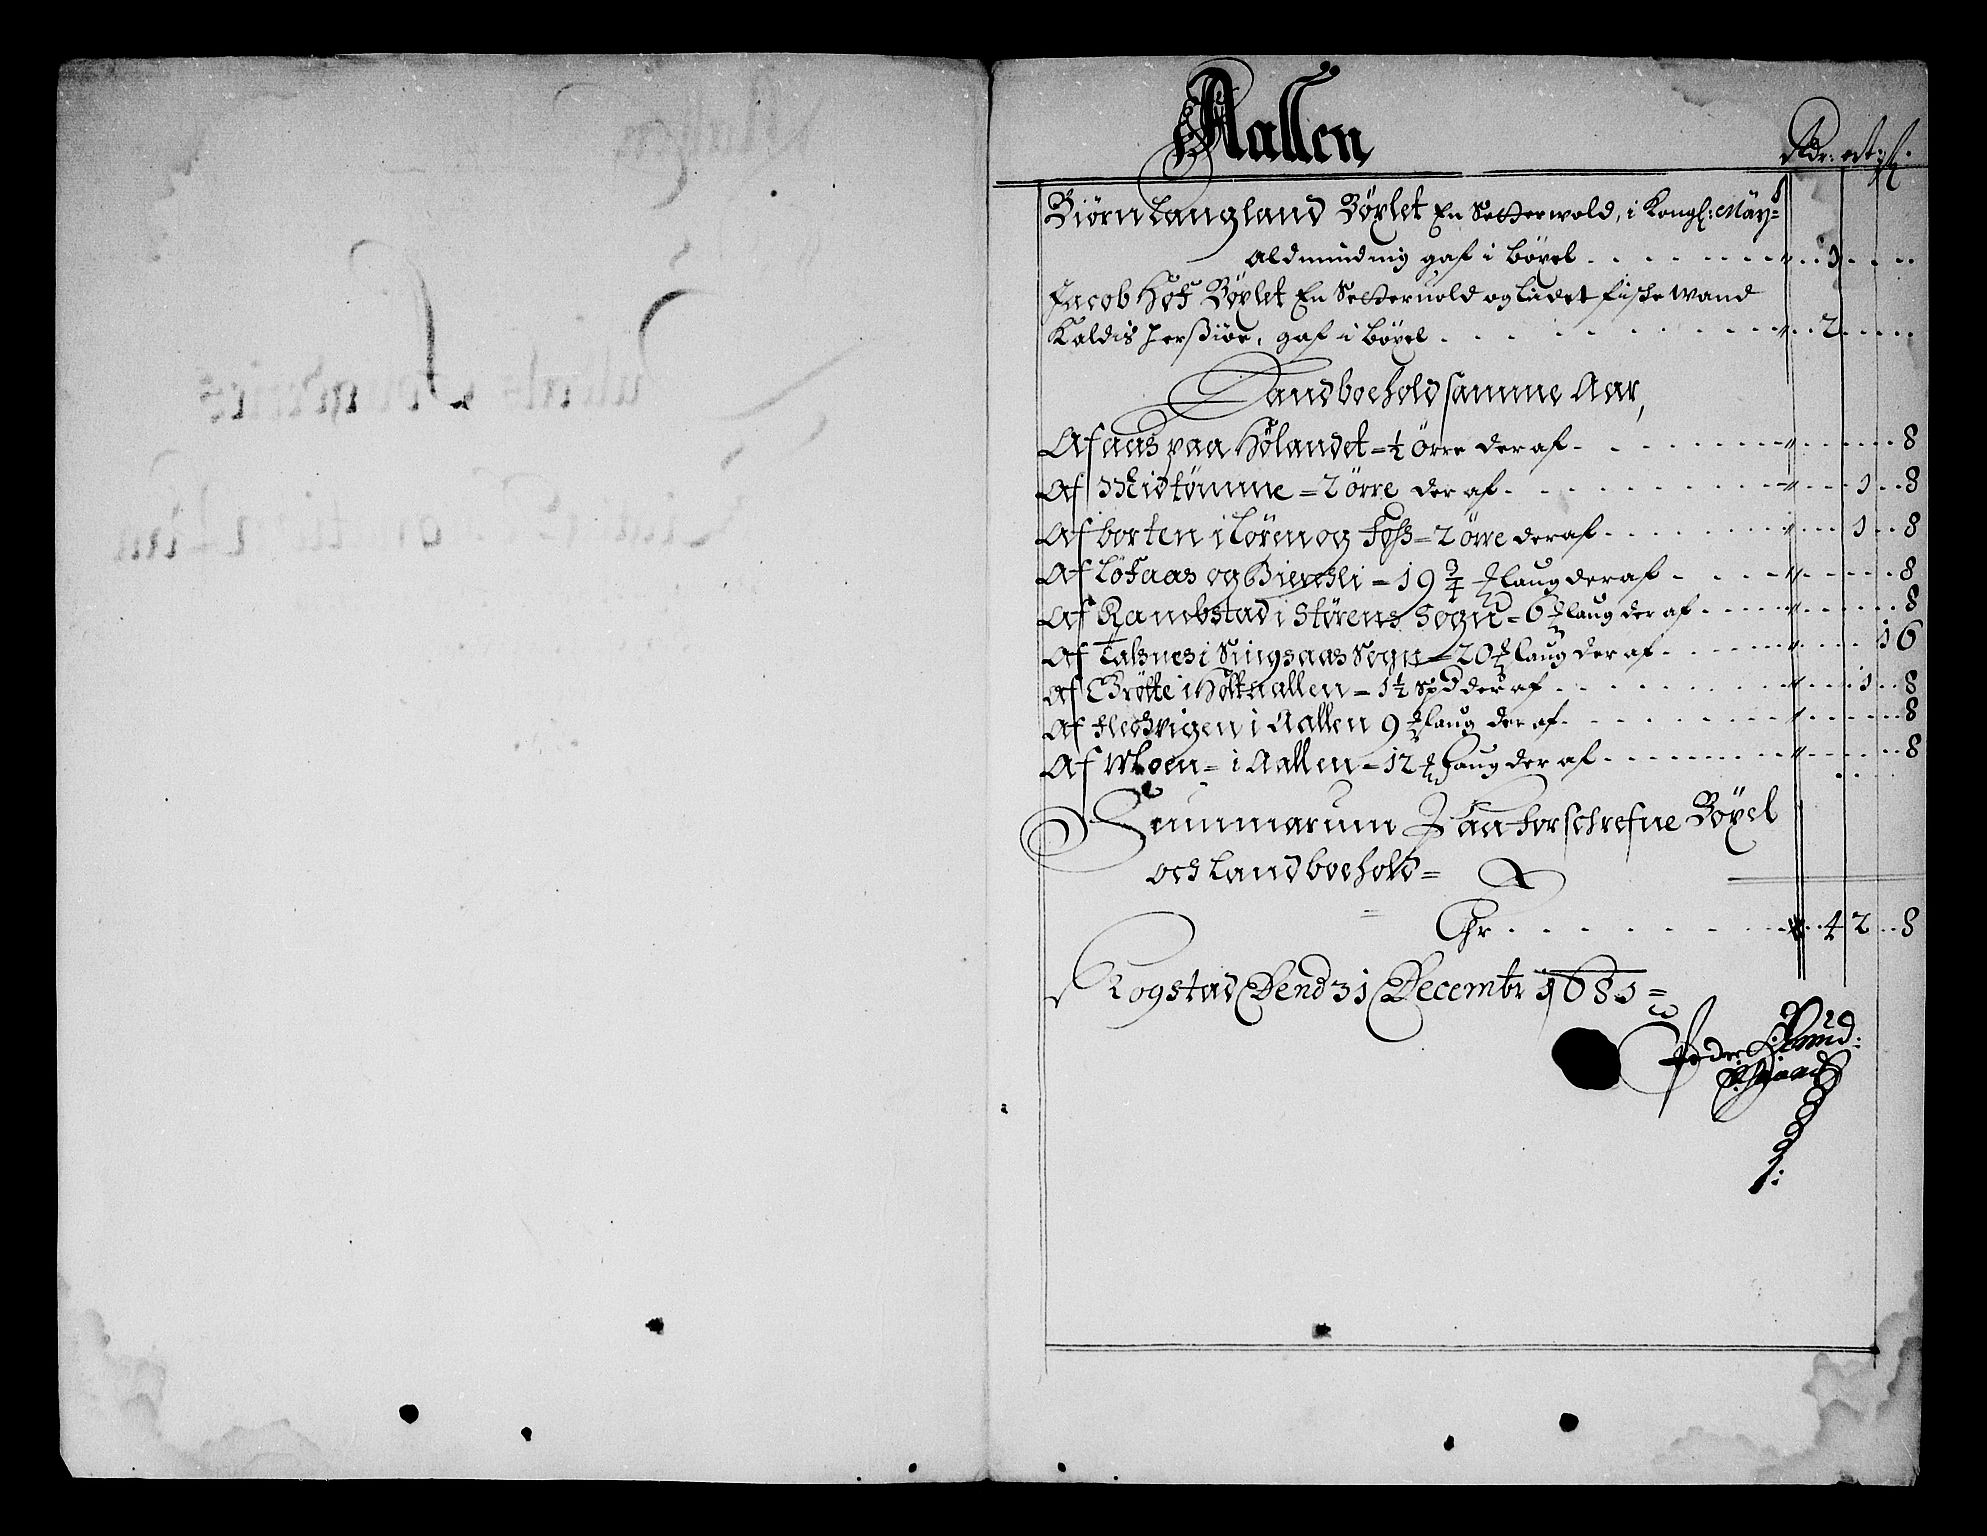 Aallen
Rdr: ort: ß.
Biørn Langland Bøxlet En Setterwold, i Kongl: Mäy=
aldminding gaf i bøxel . . . 1 . .
Jacob Hof Bøxlet En Setteruold og lidet fiske wand
Kaldis gaf i bøxel . . . 2 . .
Landboehold samme Aar,
Af aas paa Hølandet = ½ Ørre der af . . . 8
Af Midtømme = 2 ørre der af . . . 1 . . 8
Af borten i Løren og Foss = 2 ørre der af . . . 1 . . 8
Af Løfaas og = 19 ¾ laug der af . . . 8
Af Rambstad i Størens Sogn = 6 laug der af . . . 8
Af Talsnes i Singsaas Sogn = 20 laug der af . . . 16
Af Grøtte i Høltaallen = 1½ Spd der af . . . 1 . . 8
Af Hedvigen i Aallen 9 laug der af . . . 8
Af Moen = i Aallen = 12 laug der af . . . 8
Summarum Paa forschrefne Bøxel
och Landboehold =
Er . . . 4 2 . . 8
Rogstad Dend 31 Decembr 1681 =
Peder